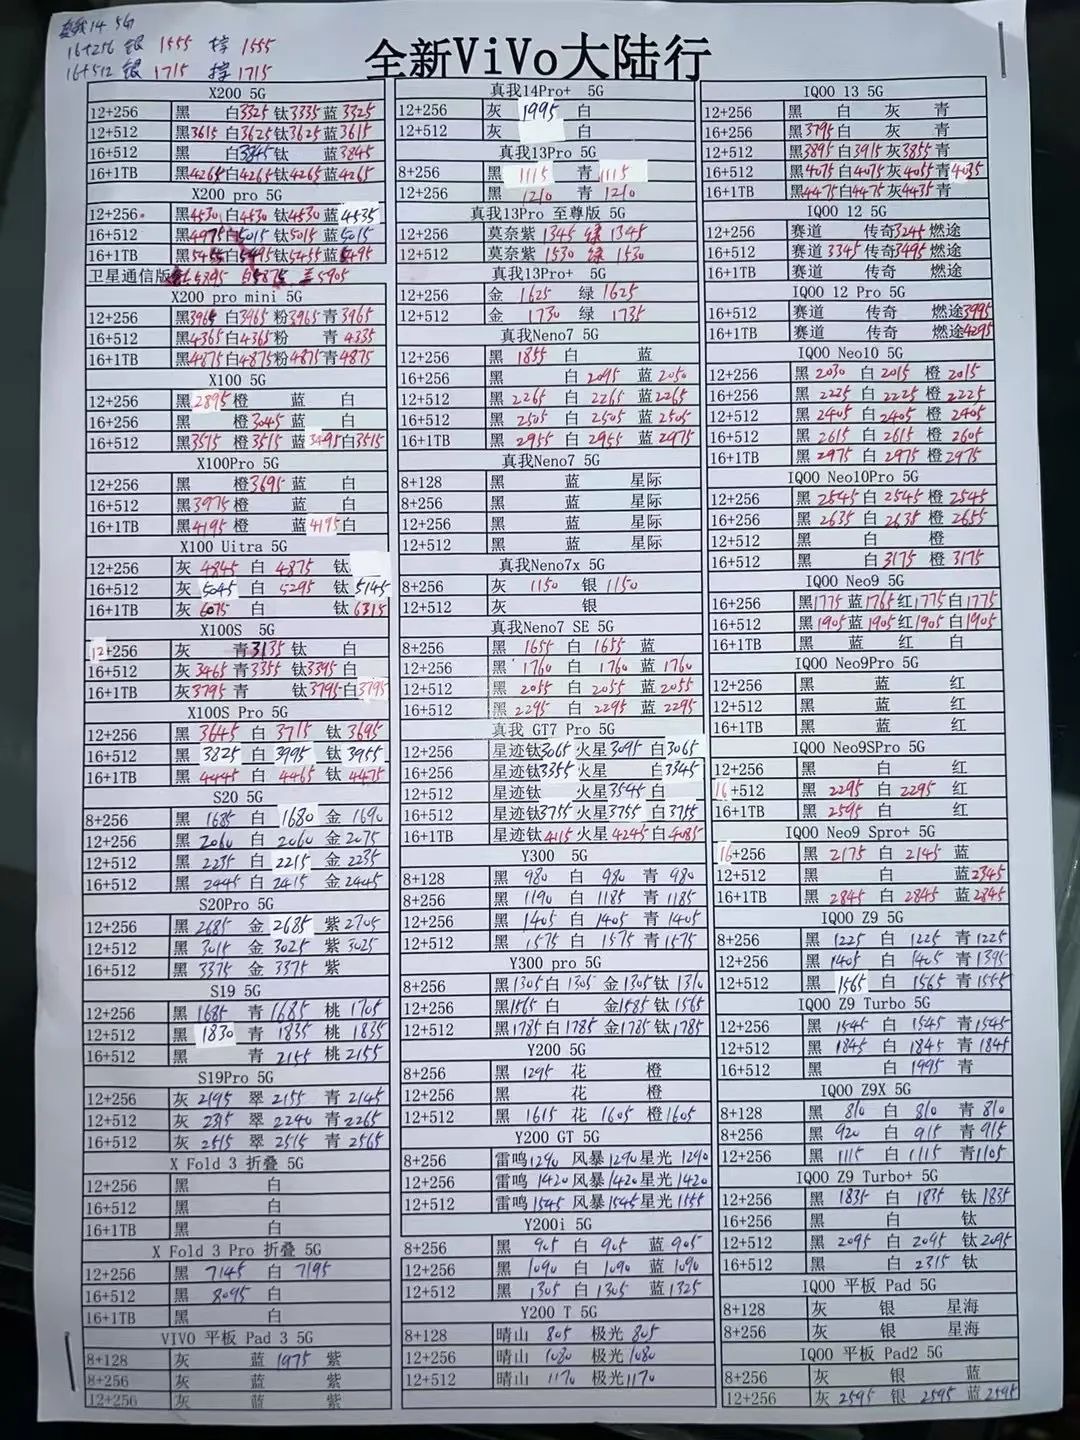 真我14 5G
16+256 银 1555 橙 1555
16+512 银 1715 橙 1715
全新ViVo大陆行
X200 5G
12+256 黑 白3325 钛3335 蓝3325
12+512 黑3615 白3625 钛3625 蓝3615
16+512 黑 白3845 钛 蓝3845
16+1TB 黑4265 白4265 钛4265 蓝4265
X200 pro 5G
12+256 黑4530 白4530 钛4530 蓝4535
16+512 黑4975 白5015 钛5015 蓝5015
16+1TB 黑5455 白5495 钛5455 蓝5495
卫星通信版 5895 白5875 5905
X200 pro mini 5G
12+256 黑3965 白3965 粉3965 青3965
16+512 黑4365 白4365 粉 青4335
16+1TB 黑4875 白4875 粉4875 青4875
X100 5G
12+256 黑2895 橙 蓝 白
16+256 黑 橙3045 蓝 白
16+512 黑3515 橙3515 蓝3495 白3515
X100Pro 5G
12+256 黑 橙3695 蓝 白
16+512 黑3975 橙 蓝 白
16+1TB 黑4195 橙 蓝4195 白
X100 Uitra 5G
12+256 灰 4845 白 4875 钛
16+512 灰 5045 白 5295 钛 5145
16+1TB 灰 6075 白 钛 6315
X100S 5G
12+256 灰 青3135 钛 白
16+512 灰3465 青3355 钛3395 白
16+1TB 灰3795 青 钛3795 白3795
X100S Pro 5G
12+256 黑 3645 白 3715 钛 3695
16+512 黑 3825 白 3995 钛 3955
16+1TB 黑 4445 白 4465 钛 4475
S20 5G
8+256 黑 1685 白 1680 金 1690
12+256 黑 2060 白 2060 金 2075
12+512 黑 2235 白 2215 金 2235
16+512 黑 2445 白 2415 金 2445
S20Pro 5G
12+256 黑 2685 金 2685 紫 2705
12+512 黑 3015 金 3025 紫 3025
16+512 黑 3375 金 3375 紫
S19 5G
12+256 黑 1685 青 1685 桃 1705
12+512 黑 1830 青 1835 桃 1835
16+512 黑 青 2155 桃 2155
S19Pro 5G
12+256 灰 2195 翠 2155 青 2145
12+512 灰 2315 翠 2240 青 2265
16+512 灰 2515 翠 2515 青 2565
X Fold 3 折叠 5G
12+256 黑 白
16+512 黑 白
16+1TB 黑 白
X Fold 3 Pro 折叠 5G
12+256 黑 7145 白 7195
16+512 黑 8095 白
16+1TB 黑 白
VIVO 平板 Pad 3 5G
8+128 灰 蓝 1975 紫
8+256 灰 蓝 紫
12+256 灰 蓝 紫
真我14Pro+ 5G
12+256 灰 1995 白
12+512 灰 白
真我13Pro 5G
8+256 黑 1115 青 1115
12+256 黑 1210 青 1210
真我13Pro 至尊版 5G
12+256 莫奈紫 1345 绿 1345
12+512 莫奈紫 1530 绿 1530
真我13Pro+ 5G
12+256 金 1625 绿 1625
12+512 金 1730 绿 1735
真我Neno7 5G
12+256 黑 1855 白 蓝
16+256 黑 白 2095 蓝 2050
12+512 黑 2265 白 2265 蓝 2265
16+512 黑 2505 白 2505 蓝 2505
16+1TB 黑 2955 白 2955 蓝 2975
真我Neno7 5G
8+128 黑 蓝 星际
8+256 黑 蓝 星际
12+256 黑 蓝 星际
12+512 黑 蓝 星际
真我Neno7x 5G
8+256 灰 1150 银 1150
12+512 灰 银
真我Neno7 SE 5G
8+256 黑 1655 白 1655 蓝
12+256 黑 1760 白 1760 蓝 1760
12+512 黑 2055 白 2055 蓝 2055
16+512 黑 2295 白 2295 蓝 2295
真我 GT7 Pro 5G
12+256 星迹钛3065 火星3095 白3065
16+256 星迹钛3355 火星 白3345
12+512 星迹钛 火星3545 白
16+512 星迹钛3755 火星3755 白3755
16+1TB 星迹钛4115 火星4245 白4085
Y300 5G
8+128 黑 980 白 980 青 980
8+256 黑 1190 白 1185 青 1185
12+256 黑 1405 白 1405 青 1405
12+512 黑 1575 白 1575 青 1575
Y300 pro 5G
8+256 黑1305 白1305 金1305 钛1310
12+256 黑1565 白 金1585 钛1565
12+512 黑1785 白1785 金1785 钛1785
Y200 5G
8+256 黑 1295 花 橙
12+256 黑 花 橙
12+512 黑 1615 花 1605 橙1605
Y200 GT 5G
8+256 雷鸣1290 风暴1290 星光1290
12+256 雷鸣1420 风暴1420 星光1420
12+512 雷鸣1545 风暴1545 星光1555
Y200i 5G
8+256 黑 905 白 905 蓝 905
12+256 黑 1090 白 1090 蓝 1090
12+512 黑 1305 白 1305 蓝 1325
Y200 T 5G
8+128 晴山 805 极光 805
12+256 晴山 1080 极光 1080
12+512 晴山 1170 极光 1170
IQOO 13 5G
12+256 黑 白 灰 青
16+256 黑3795 白 灰 青
12+512 黑3895 白3915 灰3855 青
16+512 黑4075 白4075 灰4055 青4035
16+1TB 黑4475 白4475 灰4435 青
IQOO 12 5G
12+256 赛道 传奇3245 燃途
16+512 赛道 3345 传奇3495 燃途
16+1TB 赛道 传奇 燃途
IQOO 12 Pro 5G
16+512 赛道 传奇 燃途3995
16+1TB 赛道 传奇 燃途4295
IQOO Neo10 5G
12+256 黑 2030 白 2015 橙 2015
16+256 黑 2225 白 2225 橙 2225
12+512 黑 2405 白 2405 橙 2405
16+512 黑 2615 白 2615 橙 2605
16+1TB 黑 2975 白 2975 橙 2975
IQOO Neo10Pro 5G
12+256 黑 2545 白 2545 橙 2545
16+256 黑 2635 白 2635 橙 2655
12+512 黑 白 橙
16+512 黑 白 3175 橙 3175
IQOO Neo9 5G
16+256 黑1775 蓝1765 红1775 白1775
16+512 黑1905 蓝1905 红1905 白1905
16+1TB 黑 蓝 红 白
IQOO Neo9Pro 5G
12+256 黑 蓝 红
12+512 黑 蓝 红
16+1TB 黑 蓝 红
IQOO Neo9SPro 5G
12+256 黑 白 红
16+512 黑 2295 白 2295 红
16+1TB 黑 2595 白 红
IQOO Neo9 Spro+ 5G
16+256 黑 2175 白 2145 蓝
12+512 黑 白 蓝2345
16+1TB 黑 2845 白 2845 蓝2845
IQOO Z9 5G
8+256 黑 1225 白 1225 青1225
12+256 黑 1405 白 1405 青1395
12+512 黑 1565 白 1565 青1555
IQOO Z9 Turbo 5G
12+256 黑 1545 白 1545 青1545
12+512 黑 1845 白 1845 青1845
16+512 黑 白 1995 青
IQOO Z9X 5G
8+128 黑 810 白 810 青 810
8+256 黑 920 白 915 青 915
12+256 黑 1115 白 1115 青1105
IQOO Z9 Turbo+ 5G
12+256 黑 1835 白 1835 钛 1835
16+256 黑 白 钛
12+512 黑 2095 白 2095 钛2095
16+512 黑 白 2315 钛
IQOO 平板 Pad 5G
8+128 灰 银 星海
8+256 灰 银 星海
IQOO 平板 Pad2 5G
8+256 灰 银 蓝
12+256 灰 2595 银 2595 蓝2595